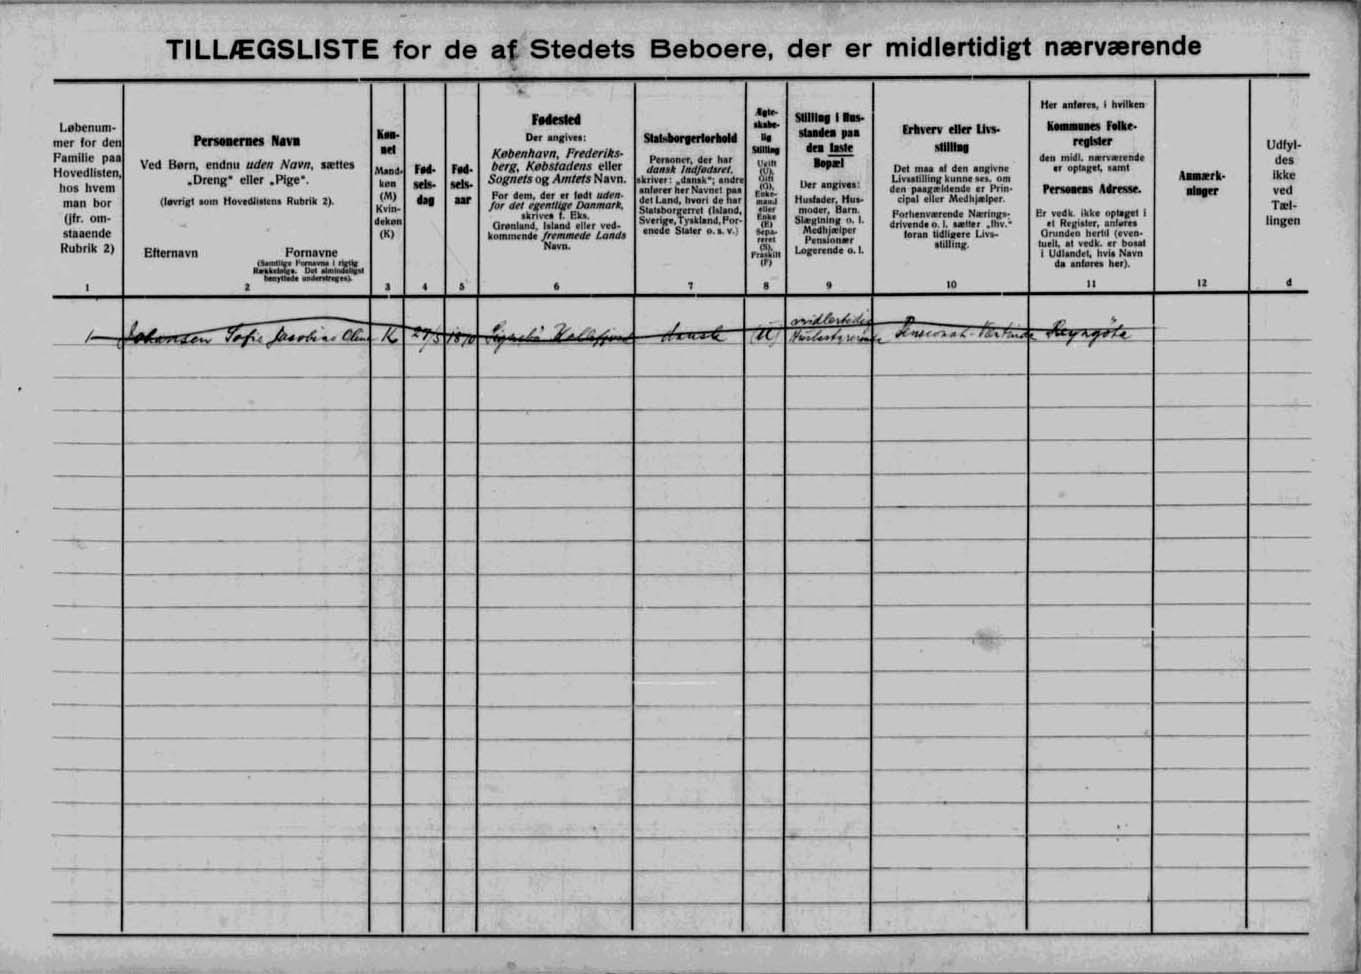 TILLÆGSLISTE for de af Stedets Beboere, der er midlertidigt nærværende
Løbenum-
mer for den
Familie paa
Hovedlisten,
hos hvem
man bor
(jfr. om-
staaende
Rubrik 2)
1
Personernes Navn
Ved Børn, endnu uden Navn, sættes
„Dreng“ eller „Pige“.
(Iøvrigt som Hovedlistens Rubrik 2).
Efternavn Fornavne
(Samtlige Fornavne i rigtig
Rækkefølge. Det almindeligst
benyttede understreges).
2
Køn-
net
Mand-
køn
(M)
Kvin-
dekøn
(K)
3
Fød-
sels-
dag
4
Fød-
sels-
aar
5
Fødested
Der angives:
København, Frederiks-
berg, Købstadens eller
Sognets og Amtets Navn.
For dem, der er født uden-
for det egentlige Danmark,
skrives f. Eks.
Grønland, Island eller ved-
kommende fremmede Lands
Navn.
6
Statsborgerforhold
Personer, der har
dansk Indfødsret,
skriver: „dansk“; andre
anfører her Navnet paa
det Land, hvori de har
Statsborgerret (Island,
Sverige, Tyskland, For-
enede Stater o. s. v.)
7
Ægte-
skabe-
lig
Stilling
Ugift
(U),
Gift
(G),
Enke-
mand
eller
Enke
(E)
Sepa-
reret
(S),
Fraskilt
(F)
8
Stilling i Hus-
standen paa
den faste
Bopæl
Der angives:
Husfader, Hus-
moder, Barn,
Slægtning o. l.
Medhjælper
Pensionær
Logerende o. l.
9
Erhverv eller Livs-
stilling
Det maa af den angivne
Livsstilling kunne ses, om
den paagældende er Prin-
cipal eller Medhjælper.
Forhenværende Nærings-
drivende o. l. sætter „fhv.“
foran tidligere Livs-
stilling.
10
Her anføres, i hvilken
Kommunes Folke-
register
den midl. nærværende
er optaget, samt
Personens Adresse.
Er vedk. ikke optaget i
et Register, anføres
Grunden hertil (even-
tuelt, at vedk. er bosat
i Udlandet, hvis Navn
da anføres her).
11
Anmærk-
ninger
12
Udfyl-
des
ikke
ved
Tæl-
lingen
d
1 Johansen Sofie Jacobine K 27/5 1870 dansk (U) midlertidig Pensionat-Værtinde